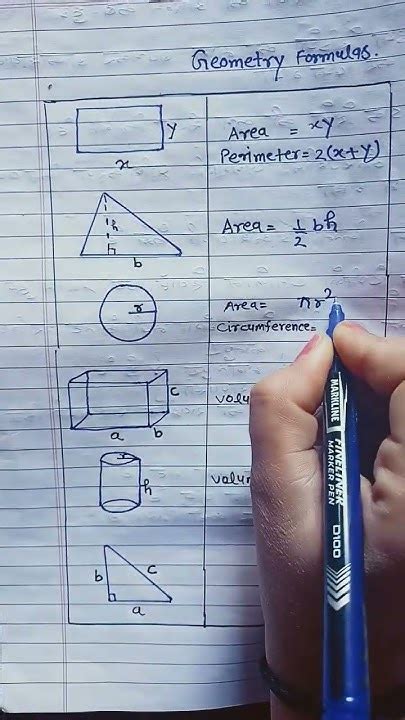 Geometry Formulas.
y
x
Area = xy
Perimeter = 2(x+y)
h
b
Area = 1/2 bh
r
Area = πr²
Circumference =
c
a
b
r
h
b
c
a
MARKLINE
FINELINER
MARKER PEN
D100